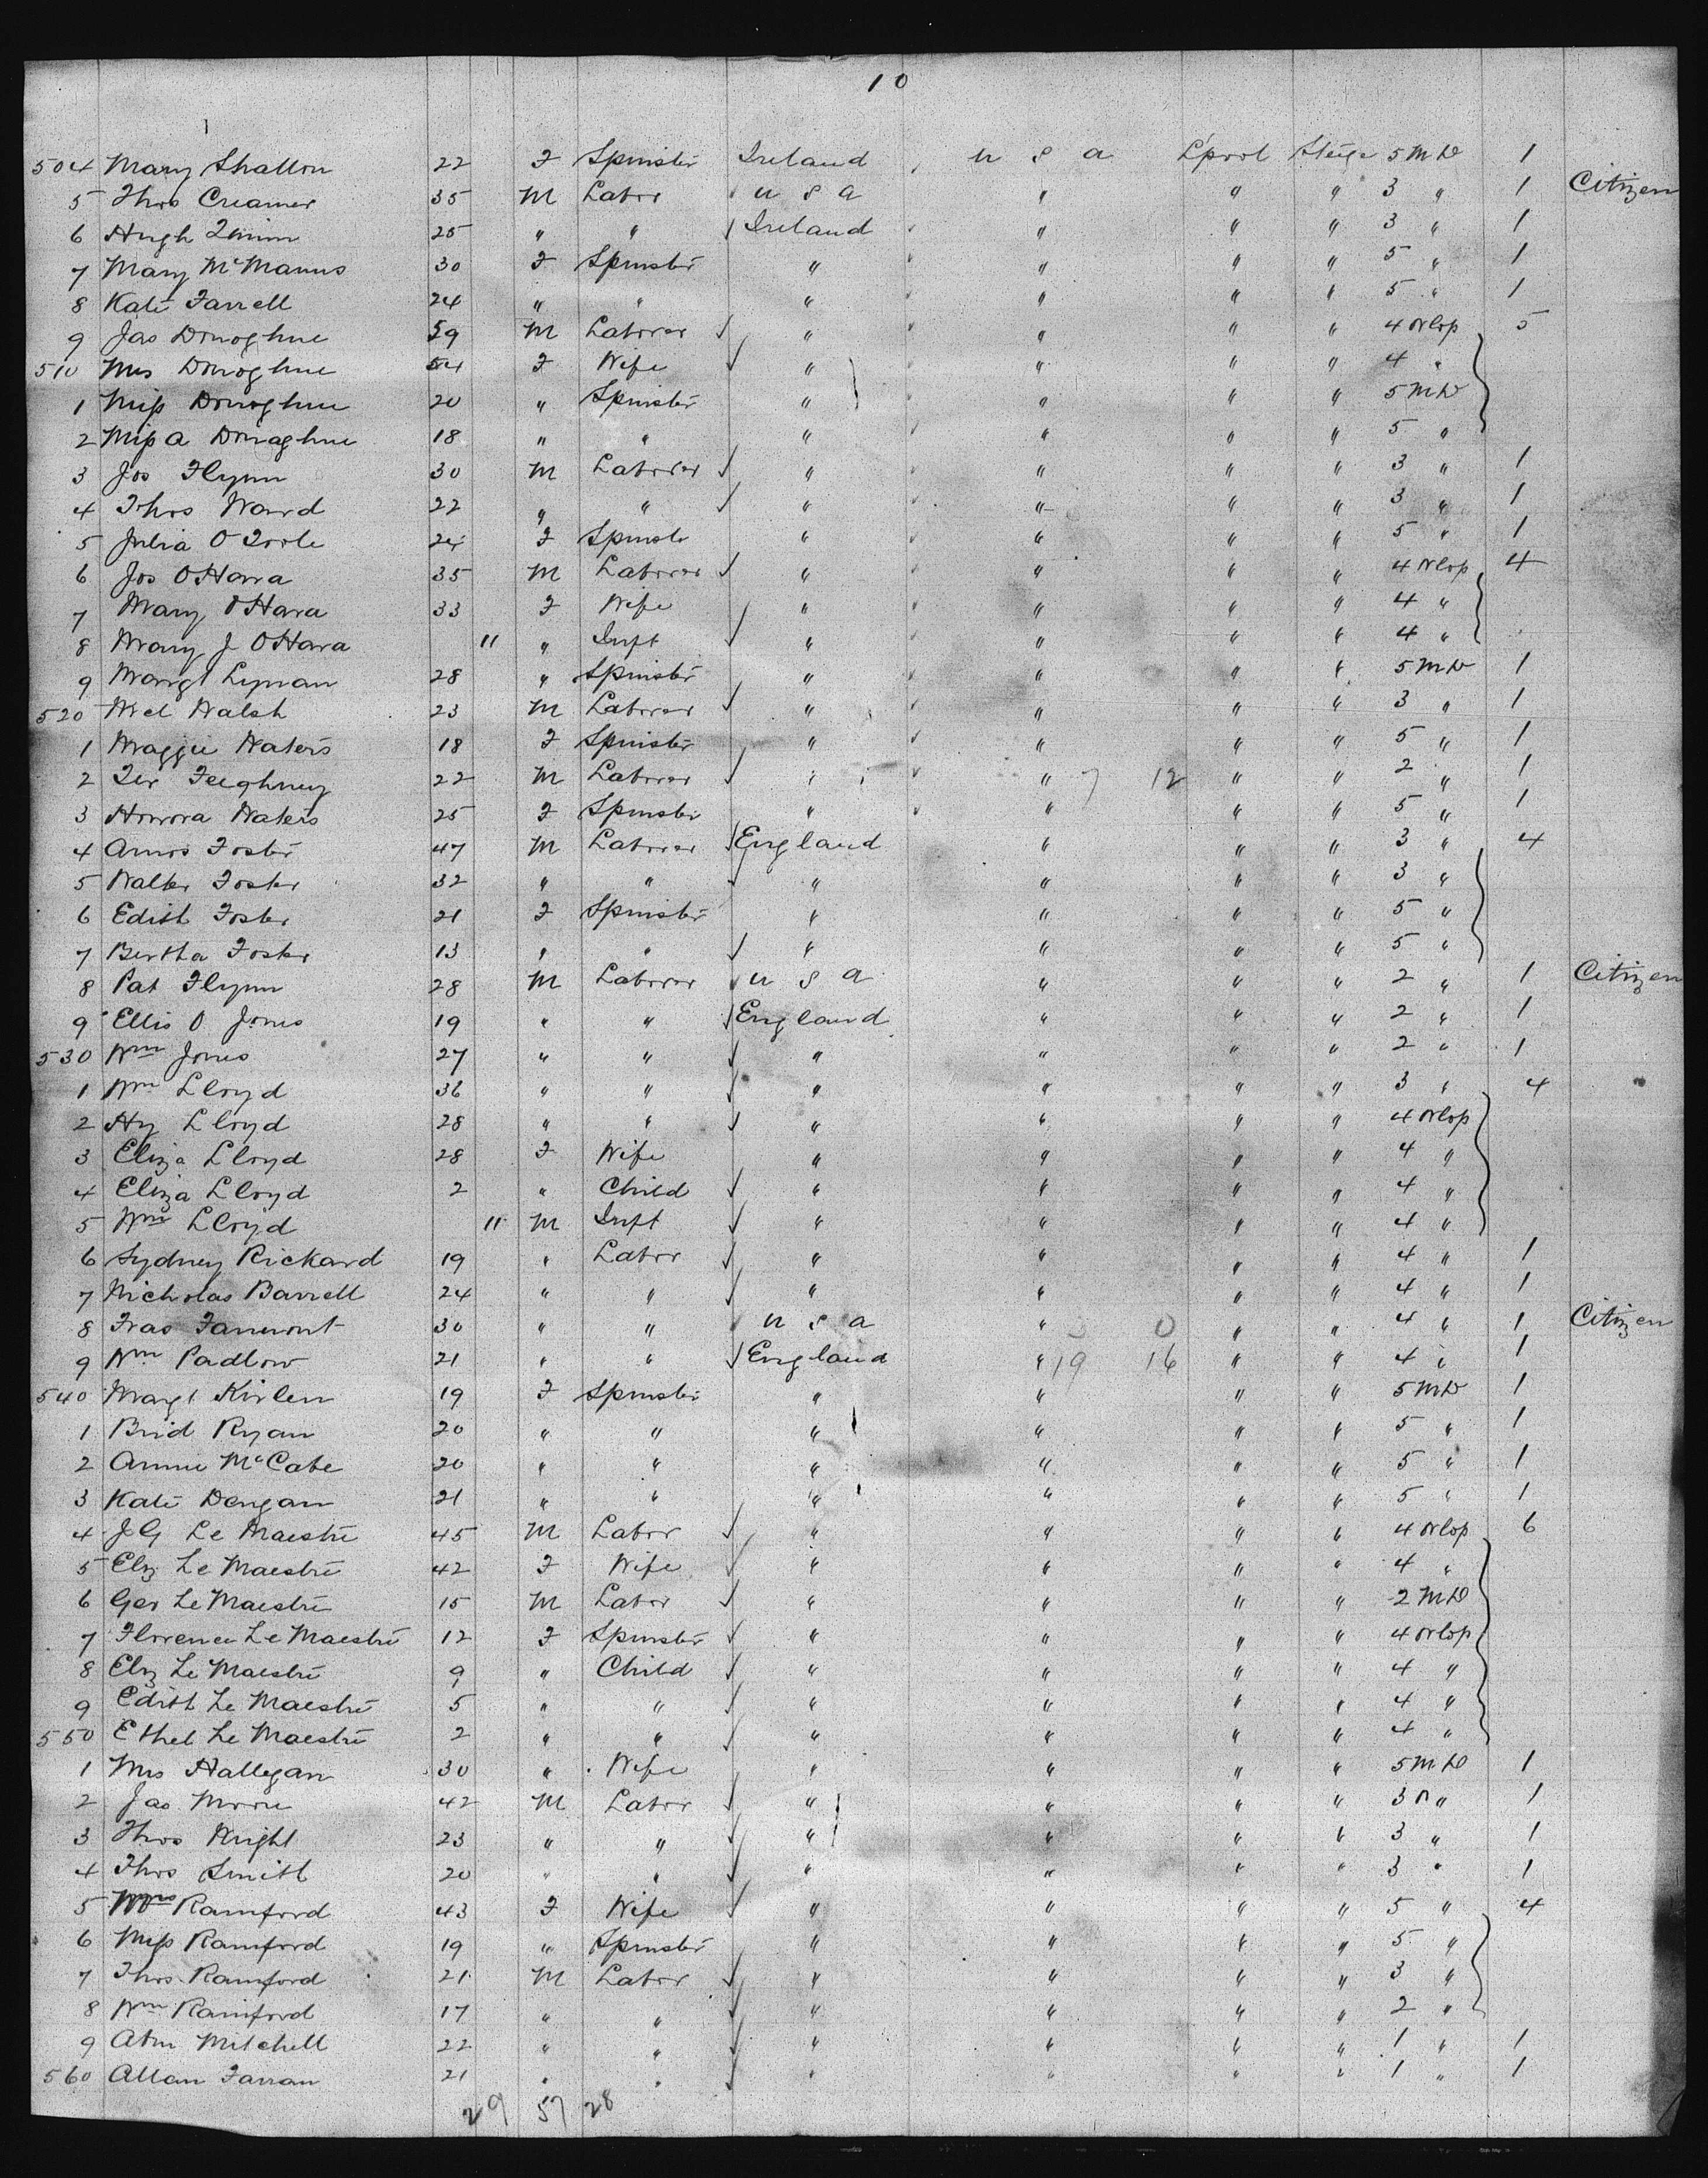 10
504 Mary Shallon 22 F Spinster Ireland U S A Lpool Steige 5 Mid 1
5 Thos Creamer 35 M Labor U S A " " " 3 " 1 Citizen
6 Hugh 25 " " Ireland " " " 3 " 1
7 Mary McManus 30 F Spinster " " " " 5 " 1
8 Kate Farrell 24 " " " " " " 5 " 1
9 Jas Donoghue 59 M Laborer " " " " 4 5
510 Mrs Donoghue 54 F Wife " " " " 4 "
1 Miss Donoghue 20 " Spinster " " " " 5 Mid
2 Miss A Donaghue 18 " " " " " " 5 "
3 Jos Flynn 30 M Laborer " " " " 3 " 1
4 Thos Ward 22 " " " " " " 3 " 1
5 Julia O Toole 24 F Spinstr " " " " 5 " 1
6 Jos OHara 35 M Laborer " " " " 4 4
7 Mary OHara 33 F Wife " " " " 4 "
8 Mary J OHara 11 " Inft " " " " 4 "
9 Margt Lynan 28 " Spinster " " " " 5 Mid 1
520 Mcl Walsh 23 M Laborer " " " " 3 " 1
1 Maggie Waters 18 F Spinster " " " " 5 " 1
2 Ter Feeghney 22 M Laborer " " 7 12 " " 2 " 1
3 Honora Waters 25 F Spinster " " " " 5 " 1
4 Amos Foster 47 M Laborer England " " " 3 " 4
5 Walter Foster 32 " " " " " " 3 "
6 Edith Foster 21 F Spinster " " " " 5 "
7 Bertha Foster 13 " " " " " " 5 "
8 Pat Flynn 28 M Laborer U S A " " " 2 " 1 Citizen
9 Ellis O Jones 19 " " England " " " 2 " 1
530 Wm Jones 27 " " " " " " 2 " 1
1 Wm Lloyd 36 " " " " " " 3 " 4
2 Hy Lloyd 28 " " " " " " 4
3 Eliza Lloyd 28 F Wife " " " " 4 "
4 Eliza Lloyd 2 " Child " " " " 4 "
5 Wm Lloyd 11 M Inft " " " " 4 "
6 Sydney Rickard 19 " Labor " " " " 4 " 1
7 Nicholas Barrell 24 " " " " " " 4 " 1
8 Fras 30 " " U S A " 0 " " 4 " 1 Citizen
9 Wm Padlow 21 " " England " 19 16 " " 4 " 1
540 Margt 19 F Spinster " " " " 5 Mid 1
1 Brid Ryan 20 " " " " " " 5 " 1
2 Annie McCabe 20 " " " " " " 5 " 1
3 Kate Dengan 21 " " " " " " 5 " 1
4 J G Le Maestre 45 M Labor " " " " 4 6
5 Elz Le Maestre 42 F Wife " " " " 4 "
6 Geo Le Maestre 15 M Labor " " " " 2 Mid
7 Florence Le Maestre 12 F Spinster " " " " 4
8 Elz Le Maestre 9 " Child " " " " 4 "
9 Edith Le Maestre 5 " " " " " " 4 "
550 Ethel Le Maestre 2 " " " " " " 4 "
1 Mrs Hallegan 30 " Wife " " " " 5 Mid 1
2 Jas Moore 42 M Labor " " " " 3 " 1
3 Thos Wright 23 " " " " " " 3 " 1
4 Thos Smith 20 " " " " " " 3 " 1
5 Rainford 43 F Wife " " " " 5 " 4
6 Miss Rainford 19 " Spinster " " " " 5 "
7 Thos Rainford 21 M Labor " " " " 3 "
8 Wm Rainford 17 " " " " " " 2 "
9 Abm Mitchell 22 " " " " " " 1 " 1
560 Allan Farran 21 " " " " " " 1 " 1
29 57 28